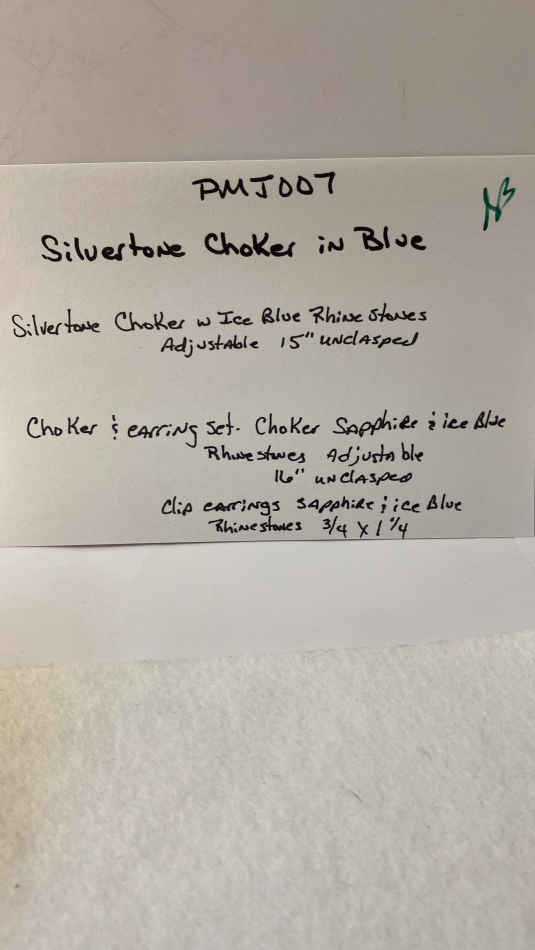 PMJ007
NB
Silvertone Choker in Blue
Silvertone Choker w Ice Blue Rhinestones
Adjustable 15" unclasped
Choker & earring set. Choker Sapphire & ice Blue
Rhinestones Adjustable
16" unclasped
Clip earrings sapphire & ice Blue
Rhinestones 3/4 X 1 1/4